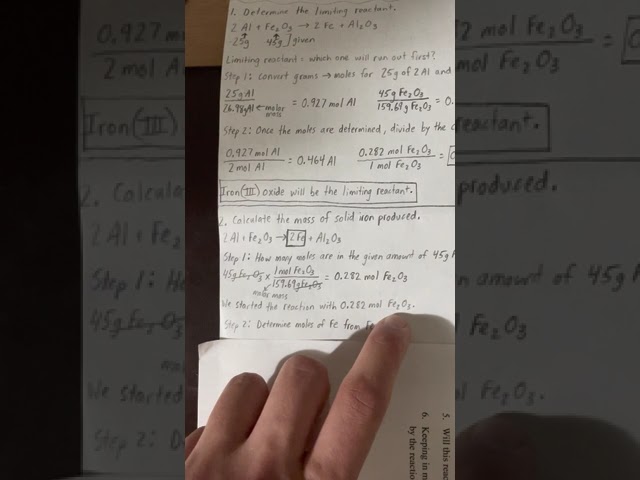 1. Determine the limiting reactant.
2 Al + Fe₂O₃ → 2 Fe + Al₂O₃
25g 45g ] given
Limiting reactant: which one will run out first?
Step 1: Convert grams → moles for 25g of 2 Al and
25g Al / 26.98g Al ← molar mass = 0.927 mol Al 45g Fe₂O₃ / 159.69g Fe₂O₃ = 0.
Step 2: Once the moles are determined, divide by the
0.927 mol Al / 2 mol Al = 0.464 Al 0.282 mol Fe₂O₃ / 1 mol Fe₂O₃ =
Iron (III) oxide will be the limiting reactant.
2. Calculate the mass of solid iron produced.
2 Al + Fe₂O₃ → 2 Fe + Al₂O₃
Step 1: How many moles are in the given amount of 45g
45g Fe₂O₃ x 1 mol Fe₂O₃ / 159.69g Fe₂O₃ = 0.282 mol Fe₂O₃
molar mass
We started the reaction with 0.282 mol Fe₂O₃.
Step 2: Determine moles of Fe from
5. Will this reac
6. Keeping in m
by the reactio